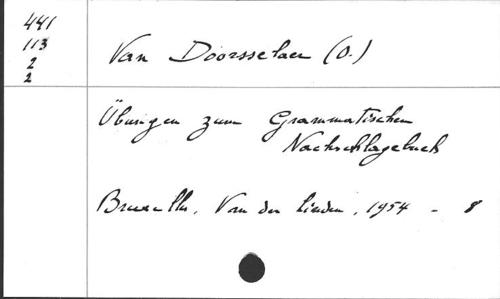 441
113
2
2
Van Doorsselaer (O.)
Übungen zum Grammatischen
Nachschlagebuch
Bruxelles, Van der Linden, 1954 - 8